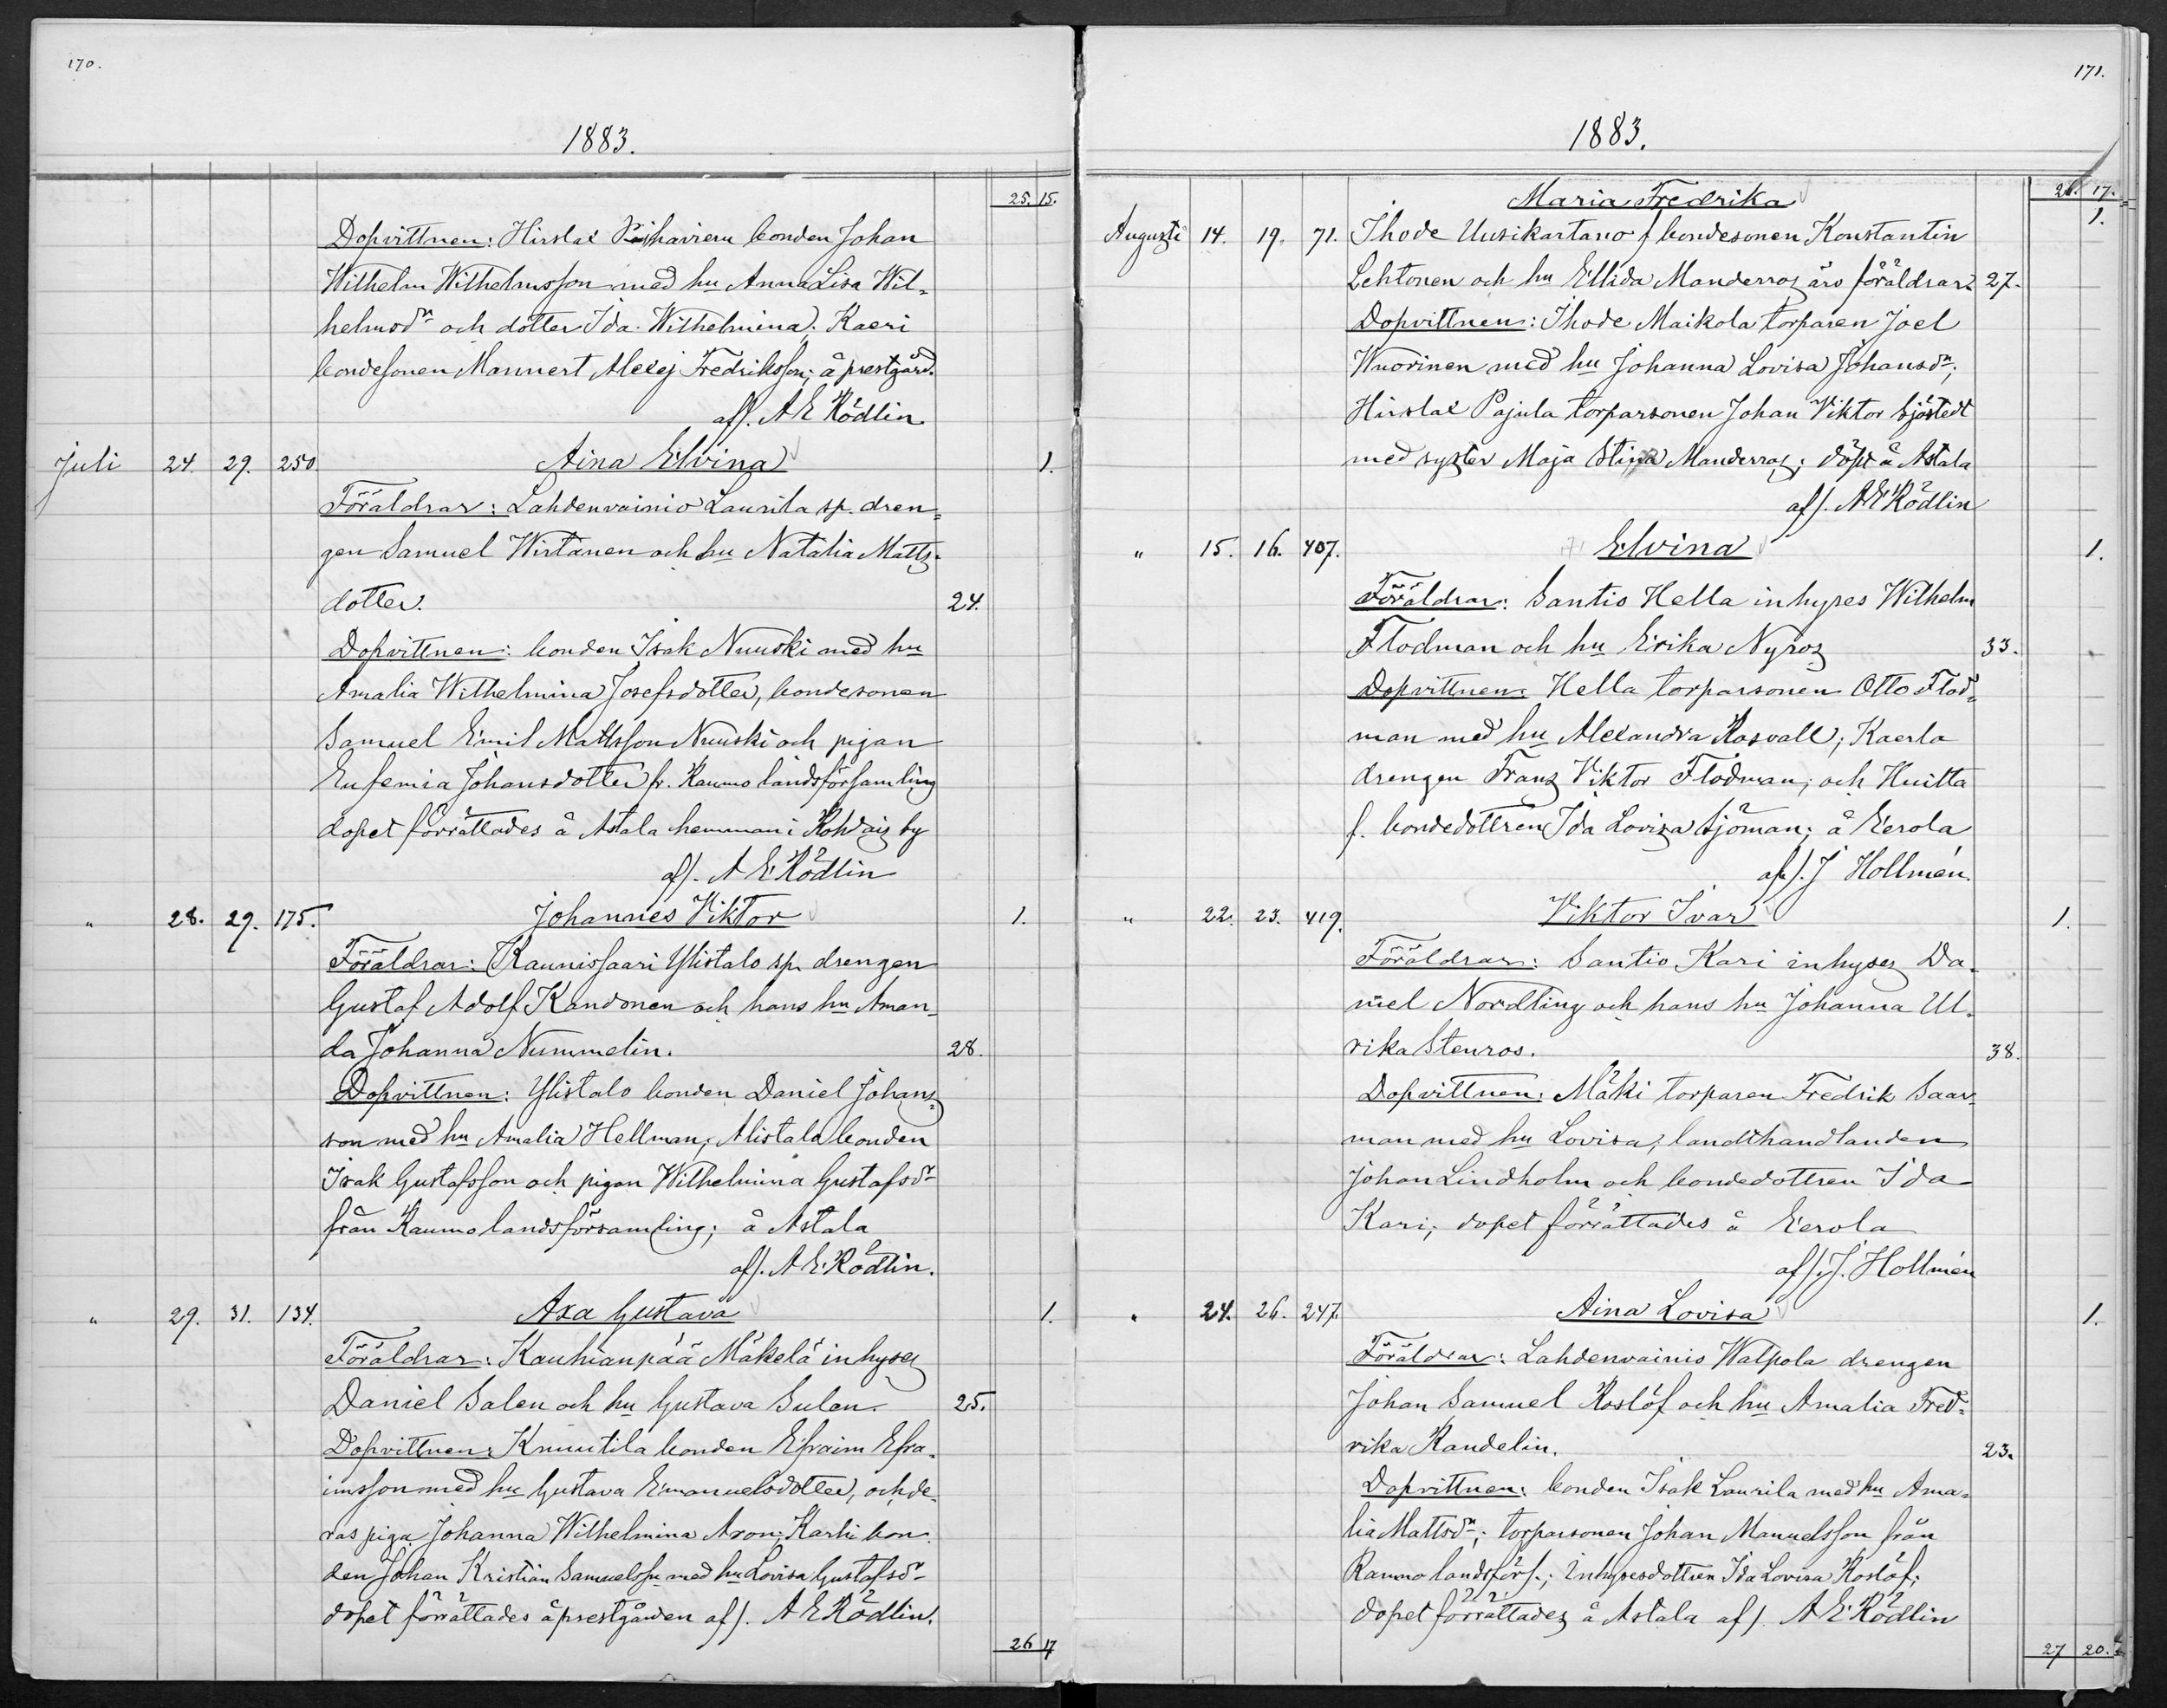 170.
1883.
25. 15.
Dopvittnen: Hirslax Pihavieru bonden Johan
Wilhelm Wilhelmsson med hu Anna Lisa Wil-
helmsdr och dotter Ida Wilhelmina; Kaeri
bondesonen Mannert Alexej Fredriksson; å prestgård.
af/. A E Rödlin
Juli 24. 29. 250 Aina Elvina 1.
Föräldrar: Lahdenvainio Laurila sp. dren-
gen Samuel Wirtanen och hu Natalia Matts-
dotter. 24.
Dopvittnen: bonden Isak Nuuski med hu
Amalia Wilhelmina Josefsdotter, bondesonen
Samuel Emil Mattsson Nuuski och pigan
Eufemia Johansdotter fr. Raumo landsförsamling
dopet förrättades å Astala hemman i Kohdais by
af/. A E Rödlin
" 28. 29. 175. Johannes Viktor 1.
Föräldrar: Kaunissaari Ylistalo sp. drengen
Gustaf Adolf Kandonen och hans hu Aman-
da Johanna Nummelin. 28.
Dopvittnen: Ylistalo bonden Daniel Johans-
son med hu Amalia Hellman; Alistalo bonden
Isak Gustafsson och pigan Wilhelmina Gustafsdr
från Raumo landsförsamling; å Astala
af/. A E Rödlin.
" 29. 31. 134. Axa Gustava 1.
Föräldrar: Kauhianpää Mäkelä inhyses
Daniel Salen och hu Gustava Sulen. 25.
Dopvittnen: Knuutila bonden Efraim Efra-
imsson med hu Gustava Emanuelsdotter, och de-
ras piga Johanna Wilhelmina Axon; Karhi bon-
den Johan Kristian Samuelsson med hu Lovisa Gustafsdr
dopet förrättades å prestgården af/. A E Rödlin.
26 17
171.
1883.
26. 17.
Maria Fredrika 1.
Augusti 14. 19. 71. Ihode Uusikartano f bondesonen Konstantin
Lehtonen och hu Ellida Manderros äro föräldrar. 27.
Dopvittnen: Ihode Maikola torparen Joel
Wuorinen med hu Johanna Lovisa Johansdr;
Hirslax Pajula torparsonen Johan Viktor Sjöstedt
med syster Maja Stina Manderros; döpt å Astala
af/. A E Rödlin
" 15. 16. 407. Elvina 1.
Föräldrar: Santio Hella inhyses Wilhelm
Flodman och hu Erika Nyros 33.
Dopvittnen: Hella torparsonen Otto Flod-
man med hu Alexandra Rosvall; Kaerla
drengen Frans Viktor Flodman; och Huitta
f. bondedottren Ida Lovisa Sjöman; å Eerola
af/. J Hollmén.
" 22. 23. 419. Viktor Ivar 1.
Föräldrar: Santio Kari inhyses Da-
niel Nordling och hans hu Johanna Ul-
rika Stenros. 38.
Dopvittnen: Mäki torparen Fredrik Saar-
man med hu Lovisa; landthandlanden
Johan Lindholm och bondedottren Ida
Kari; dopet förrättades å Eerola
af/. J. Hollmén
" 24. 26. 247. Aina Lovisa 1.
Föräldrar: Lahdenvainio Walpola drengen
Johan Samuel Roslöf och hu Amalia Fred-
rika Randelin. 23.
Dopvittnen: bonden Isak Laurila med hu Ama-
lia Mattsdr; torparsonen Johan Manuelsson från
Raumo landsförs.; Inhysesdottren Ida Lovisa Roslöf;
dopet förrättades å Astala af/. A E Rödlin
27 20.